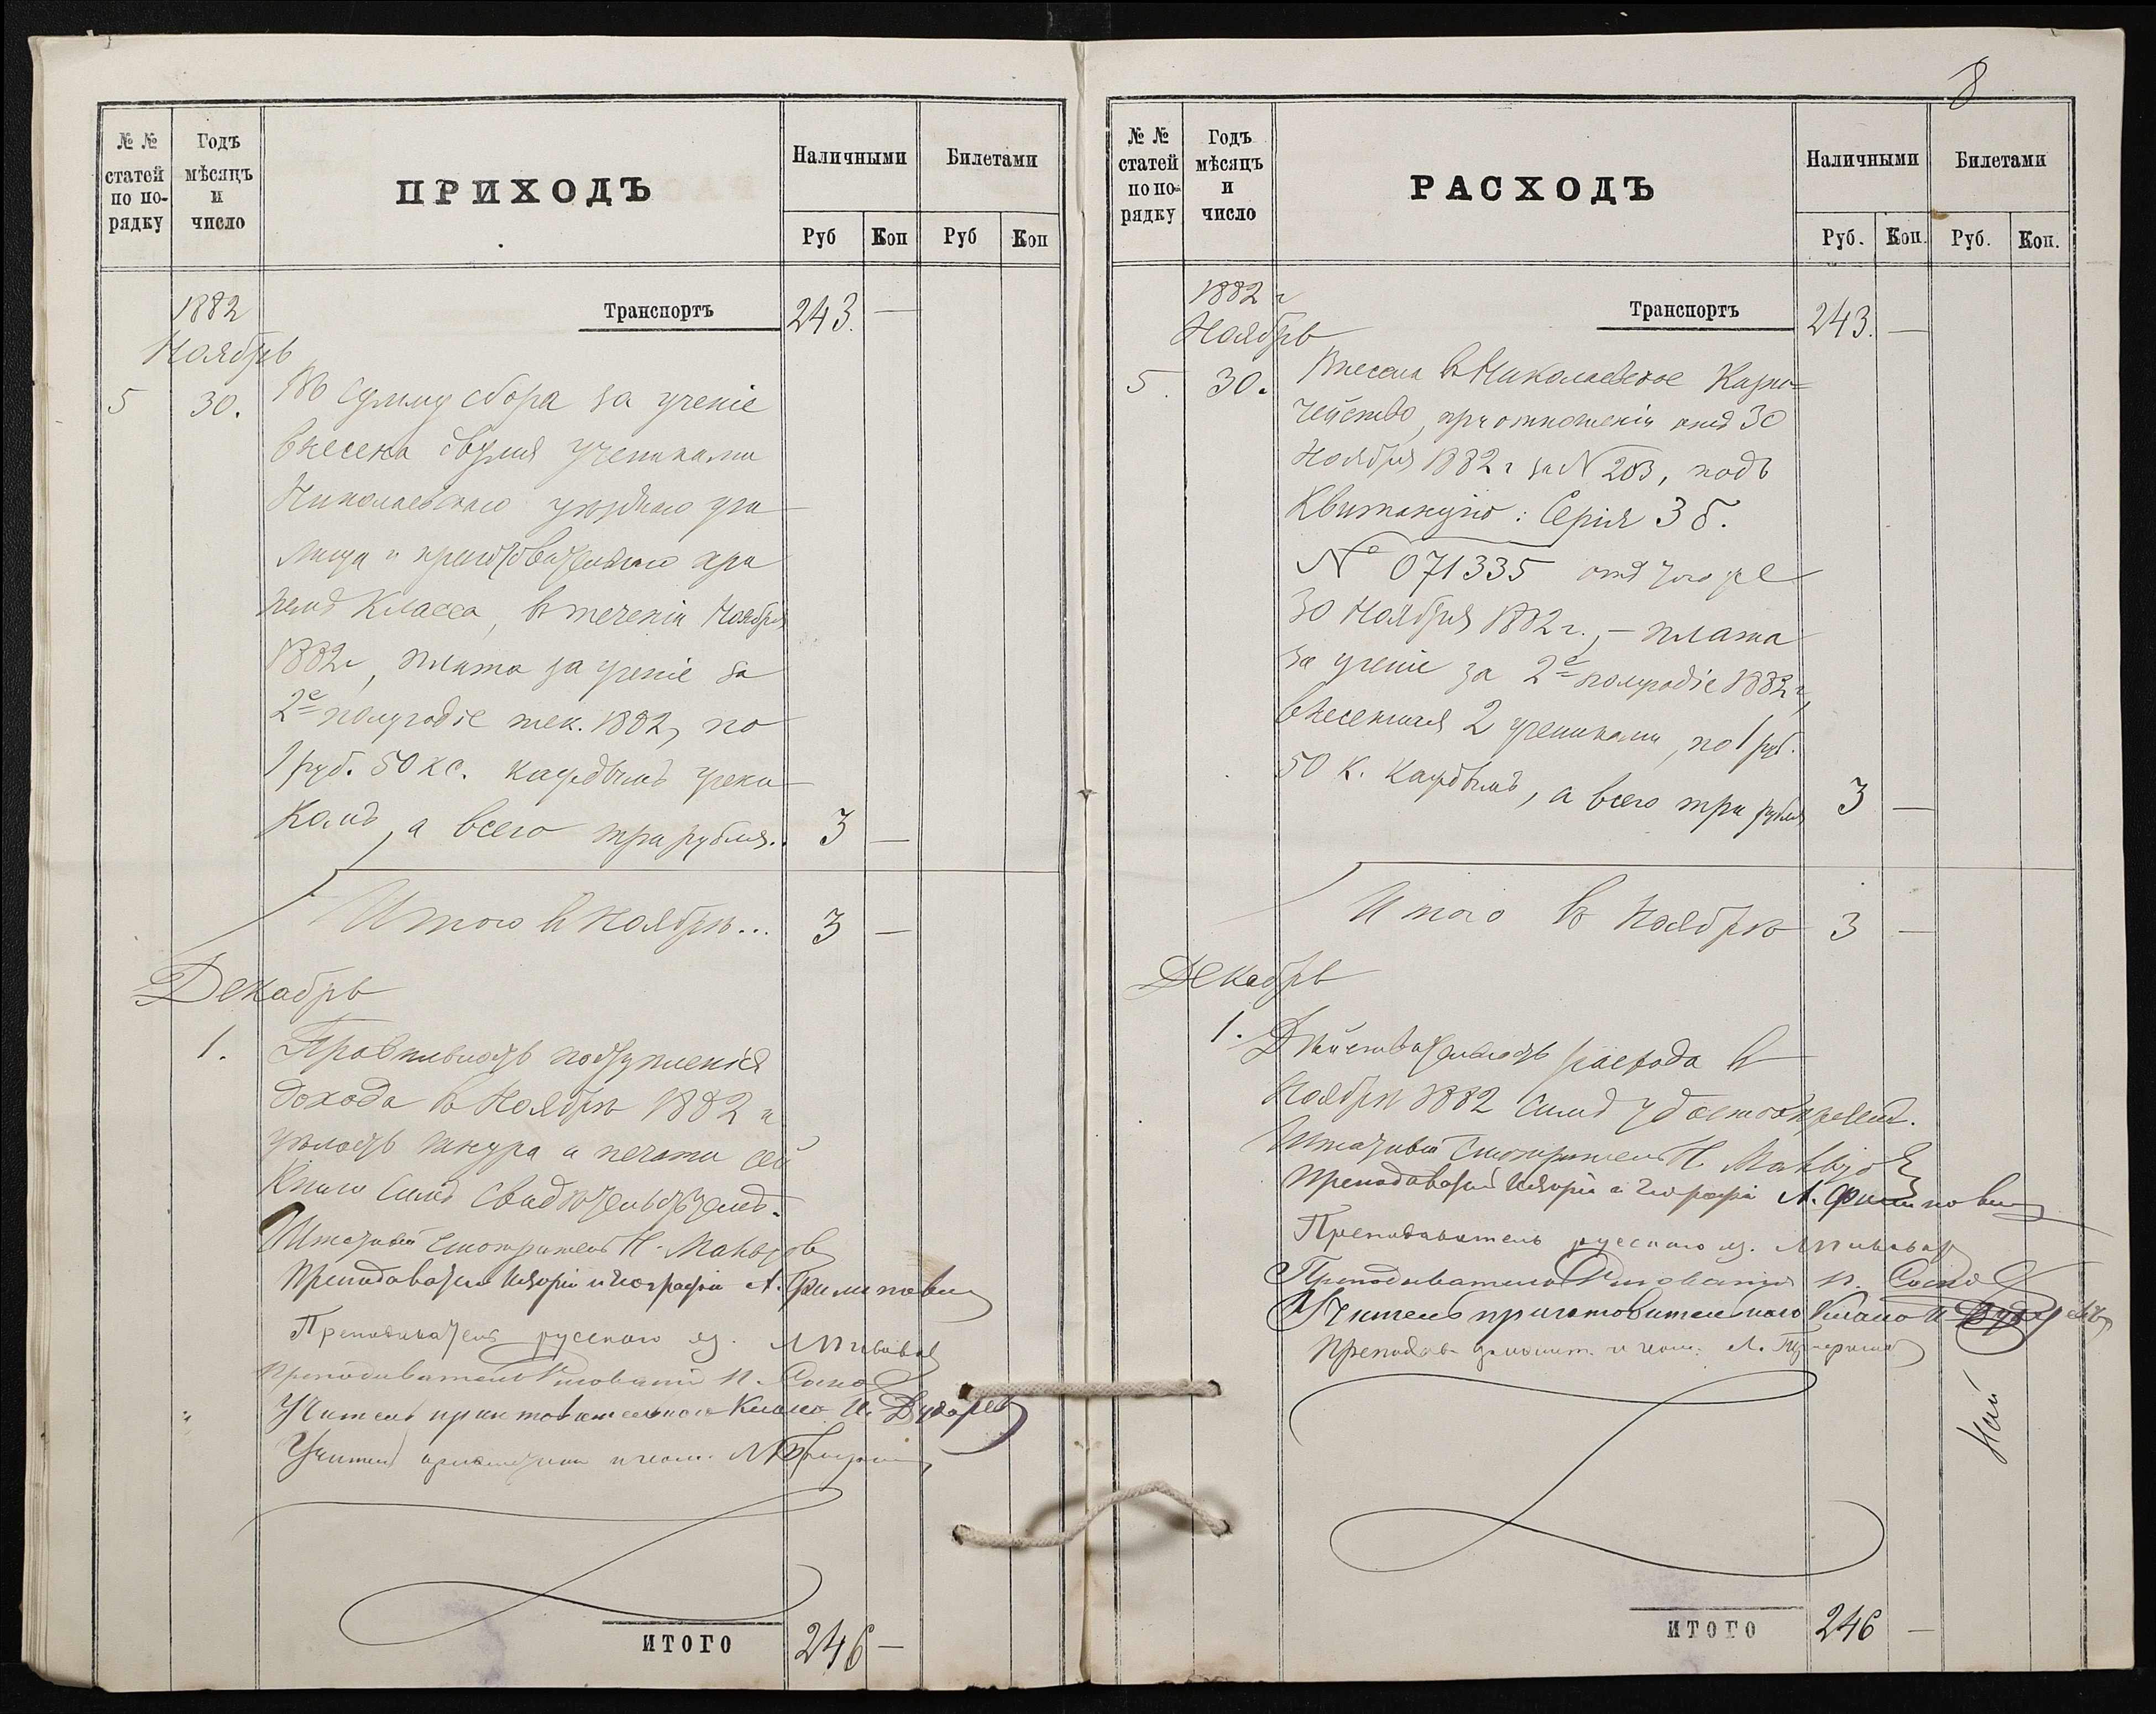 № №
статей
по по-
рядку
Годъ
мѣсяцъ
и
число
ПРИХОДЪ
Наличными
Билетами
Руб
Коп
Руб
Коп
1882
Транспортъ
243.
—
Ноябрь
5
30.
Въ сумму сбора за ученіе
внесена двумя учениками
Николаевскаго уѣзднаго учи
лища и приготовительнаго при
немъ класса, въ теченіи Ноября
1882 г, плата за ученіе за
2е полугодіе тек. 1882, по
1 руб. 50 ко. каждымъ учени
комъ, а всего три рубля.
3
—
Итого въ Ноябрѣ...
3
—
Декабрь
1.
Правильность поступленія
дохода въ Ноябрѣ 1882 г
цѣлость шнура и печати сей
книги симъ свидѣтельствуемъ.
Штатный Смотритель Н.
Преподаватель Исторіи и Географіи А. Филиповичъ
Преподаватель русскаго яз.
Преподаватель Рисованія
Учитель приготовительнаго Класса И. Дударевъ
Учитель
ИТОГО
246
—
8
№ №
статей
по по-
рядку
Годъ
мѣсяцъ
и
число
РАСХОДЪ
Наличными
Билетами
Руб.
Коп.
Руб.
Коп.
1882 г
Транспортъ
243.
—
Ноябрь
5.
30.
Внесена въ Николаевское Казна=
чейство, при отношеніи отъ 30
Ноября 1882 г за N 203, подъ
Квитанцію: Серія 3 б.
№ 071335 отъ того же
30 Ноября 1882 г., — плата
за ученіе за 2е полугодіе 1882 г,
внесенная 2 учениками, по 1 руб.
50 к. каждымъ, а всего три рубля
3
—
Итого въ Ноябрѣ
3
—
Декабрь
1.
Дѣйствительность расхода въ
Ноябрѣ 1882 симъ удостовѣряемъ.
Штатный Смотритель Н.
Преподаватель Исторіи и Географіи А. Филиповичъ
Преподаватель русскаго яз.
Преподаватель Рисованія
Учитель приготовительнаго Класса И. Дударевъ
Преподав.
ИТОГО
246
—